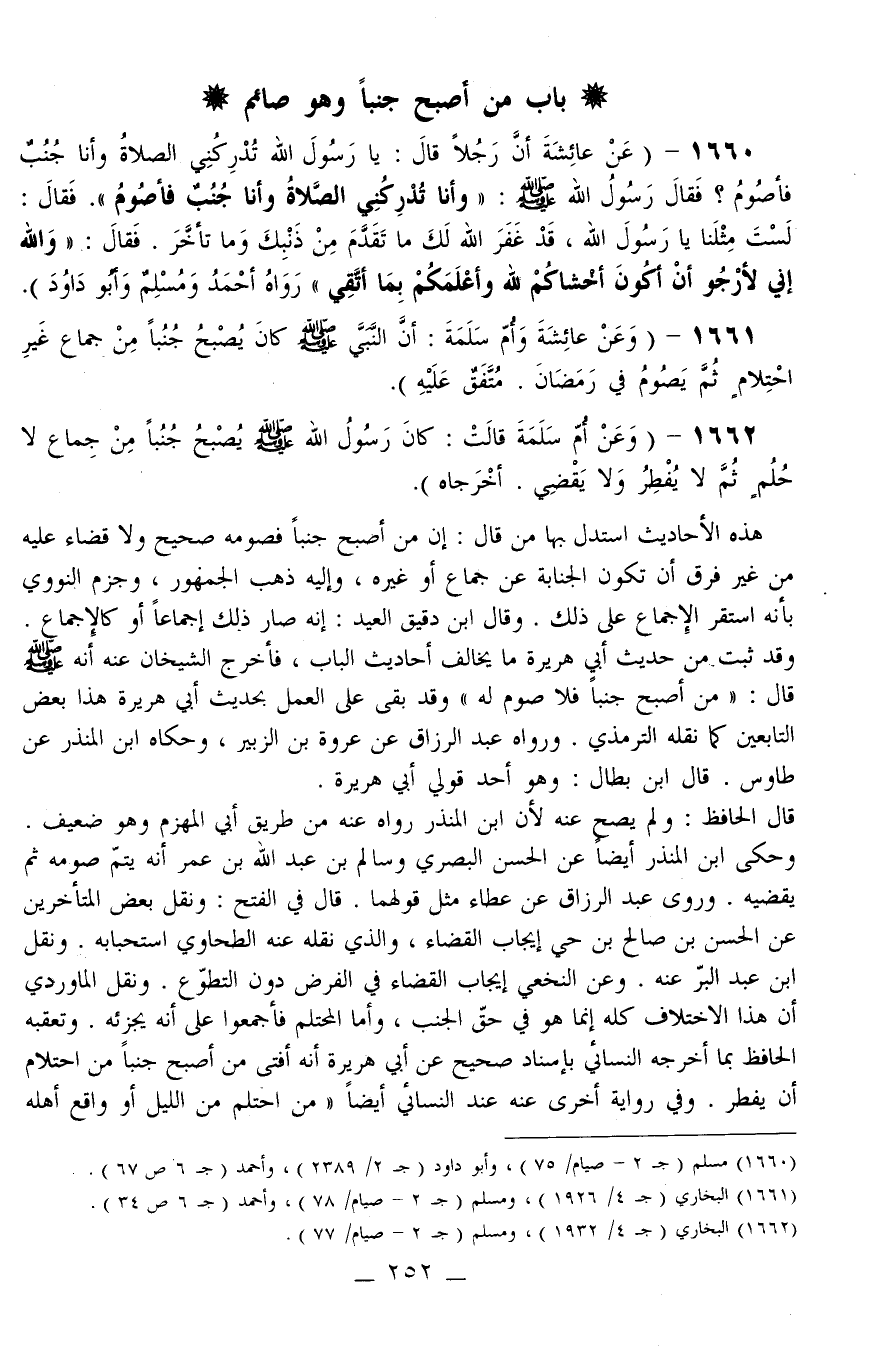 ❋ باب من أصبح جنباً وهو صائم ❋
١٦٦٠ – ( عَنْ عائِشَةَ أنَّ رَجُلاً قالَ : يا رَسُولَ الله تُدْرِكُنِي الصلاةُ وأنا جُنُبٌ
فأصُومُ ؟ فَقالَ رَسُولُ الله ﷺ : « وأنا تُدْرِكُنِي الصَّلاةُ وأنا جُنُبٌ فأصُومُ ». فَقالَ :
لَسْتَ مِثْلَنا يا رَسُولَ الله ، قَدْ غَفَرَ الله لَكَ ما تَقَدَّمَ مِنْ ذَنْبِكَ وَما تأخَّرَ . فَقالَ : « وَالله
إني لأرْجُو أنْ أكُونَ أخْشاكُمْ لله وأعْلَمَكُمْ بِمَا أتَّقِي » رَوَاهُ أحْمَدُ وَمُسْلِمٌ وَأبُو دَاوُدَ ).
١٦٦١ – ( وَعَنْ عائِشَةَ وَأُمّ سَلَمَةَ : أنَّ النَّبَيَّ ﷺ كانَ يُصْبحُ جُنُباً مِنْ جماع غَيرِ
احْتِلامٍ ثُمَّ يَصُومُ في رَمَضَانَ . مُتَّفَقٌ عَلَيْهِ ).
١٦٦٢ – ( وَعَنْ أُمّ سَلَمَةَ قالَتْ : كانَ رَسُولُ الله ﷺ يُصْبحُ جُنُباً مِنْ جِماع لا
حُلُمٍ ثُمَّ لا يُفْطِرُ وَلا يَقْضِي . أخْرَجاه ).
هذه الأحاديث استدل بها من قال : إن من أصبح جنباً فصومه صحيح ولا قضاء عليه
من غير فرق أن تكون الجنابة عن جماع أو غيره ، وإليه ذهب الجمهور ، وجزم النووي
بأنه استقر الإجماع على ذلك . وقال ابن دقيق العيد : إنه صار ذلك إجماعاً أو كالإجماع .
وقد ثبت من حديث أبي هريرة ما يخالف أحاديث الباب ، فأخرج الشيخان عنه أنه ﷺ
قال : « من أصبح جنباً فلا صوم له » وقد بقى على العمل بحديث أبي هريرة هذا بعض
التابعين كما نقله الترمذي . ورواه عبد الرزاق عن عروة بن الزبير ، وحكاه ابن المنذر عن
طاوس . قال ابن بطال : وهو أحد قولي أبي هريرة .
قال الحافظ : ولم يصح عنه لأن ابن المنذر رواه عنه من طريق أبي المهزم وهو ضعيف .
وحكى ابن المنذر أيضاً عن الحسن البصري وسالم بن عبد الله بن عمر أنه يتمّ صومه ثم
يقضيه . وروى عبد الرزاق عن عطاء مثل قولهما . قال في الفتح : ونقل بعض المتأخرين
عن الحسن بن صالح بن حي إيجاب القضاء ، والذي نقله عنه الطحاوي استحبابه . ونقل
ابن عبد البرّ عنه . وعن النخعي إيجاب القضاء في الفرض دون التطوّع . ونقل الماوردي
أن هذا الاختلاف كله إنما هو في حقّ الجنب ، وأما المحتلم فأجمعوا على أنه يجزئه . وتعقبه
الحافظ بما أخرجه النسائي بإسناد صحيح عن أبي هريرة أنه أفتى من أصبح جنباً من احتلام
أن يفطر . وفي رواية أخرى عنه عند النسائي أيضاً « من احتلم من الليل أو واقع أهله
(١٦٦٠) مسلم ( جـ ٢ – صيام/ ٧٥ ) ، وأبو داود ( جـ ٢/ ٢٣٨٩ ) ، وأحمد ( جـ ٦ ص ٦٧ ) .
(١٦٦١) البخاري ( جـ ٤/ ١٩٢٦ ) ، ومسلم ( جـ ٢ – صيام/ ٧٨ ) ، وأحمد ( جـ ٦ ص ٣٤ ) .
(١٦٦٢) البخاري ( جـ ٤/ ١٩٣٢ ) ، ومسلم ( جـ ٢ – صيام/ ٧٧ ) .
_ ٢٥٢ _